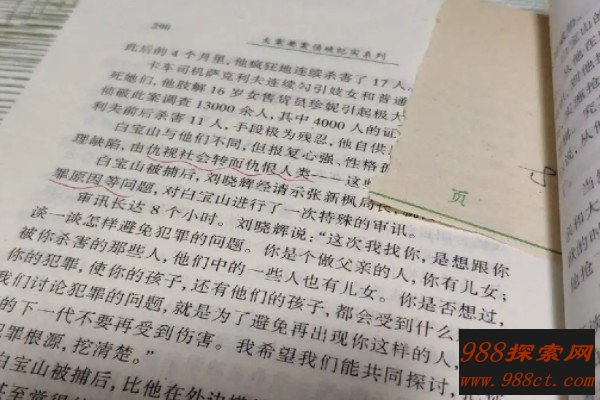 290
大案要案侦破纪实系列
此后的 4 个月里，他疯狂地连续杀害了 17 人
卡车司机萨克利夫连续勾引妓女和普通
死她们，他肢解 16 岁女售货员珍妮引起极大
侦破此案调查 13000 余人，其中 4000 人的证
利夫前后杀害 11 人，手段极为残忍，他自供
白宝山与他们不同，但报复心强、性格
理缺陷，由仇视社会转而仇恨人类——这
白宝山被捕后，刘晓辉经请示张新枫局长，
罪原因等问题，对白宝山进行了一次特殊的审讯。
审讯长达 8 个小时。刘晓辉说：“这次我找你，是想跟你
谈一谈怎样避免犯罪的问题。你是个做父亲的人，你有儿女；
被你杀害的那些人，他们中的一些人也有儿女。你是否想过，
你的犯罪，使你的孩子，还有他们的孩子，都会受到什么
我们讨论犯罪的问题，就是为了避免再出现你这样的人，
的下一代不要再受到伤害。我希望我们能共同探讨，把你
犯罪根源，挖清楚。”
白宝山被捕后，比他在外边
甚至觉得
页
988探索网
www.988ct.com